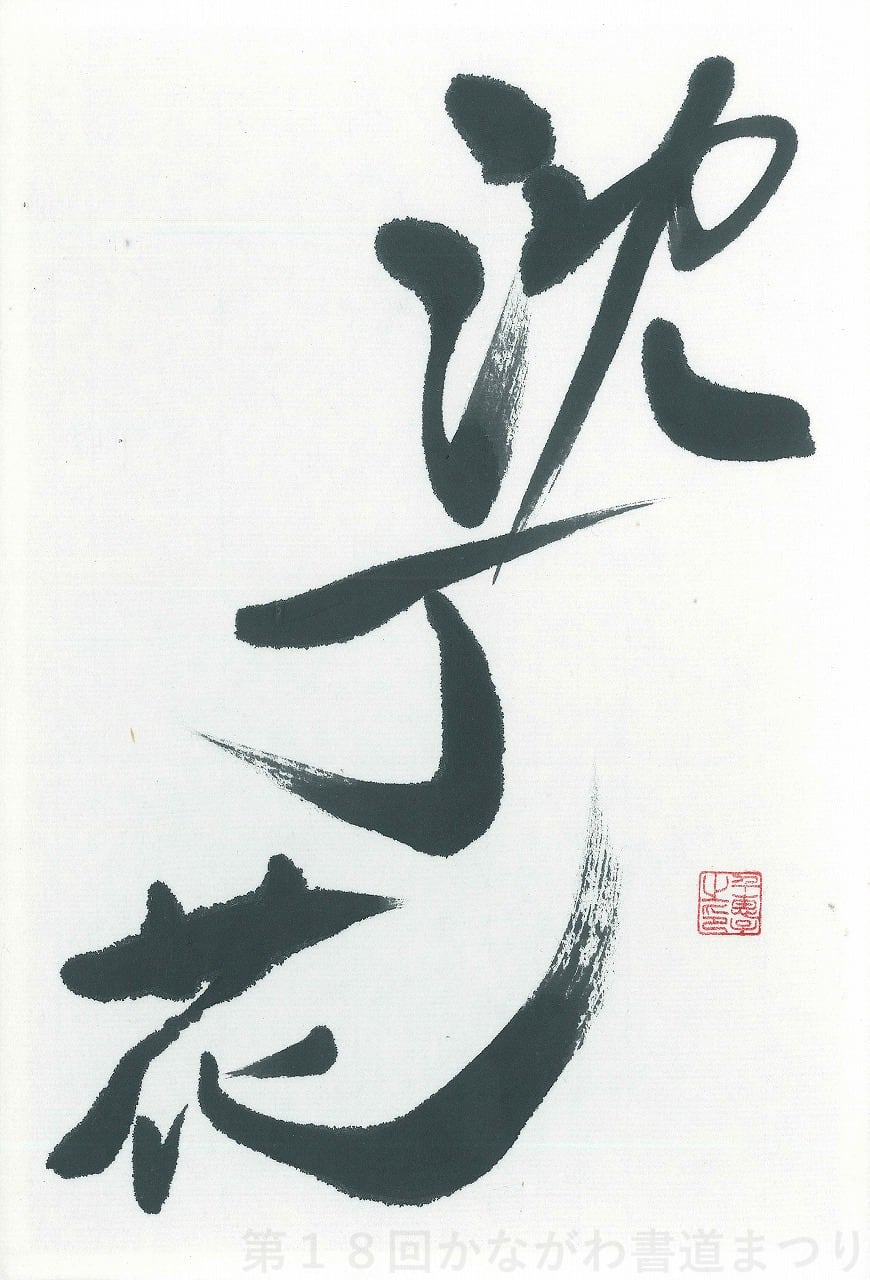 沈丁花
第１８回かながわ書道まつり